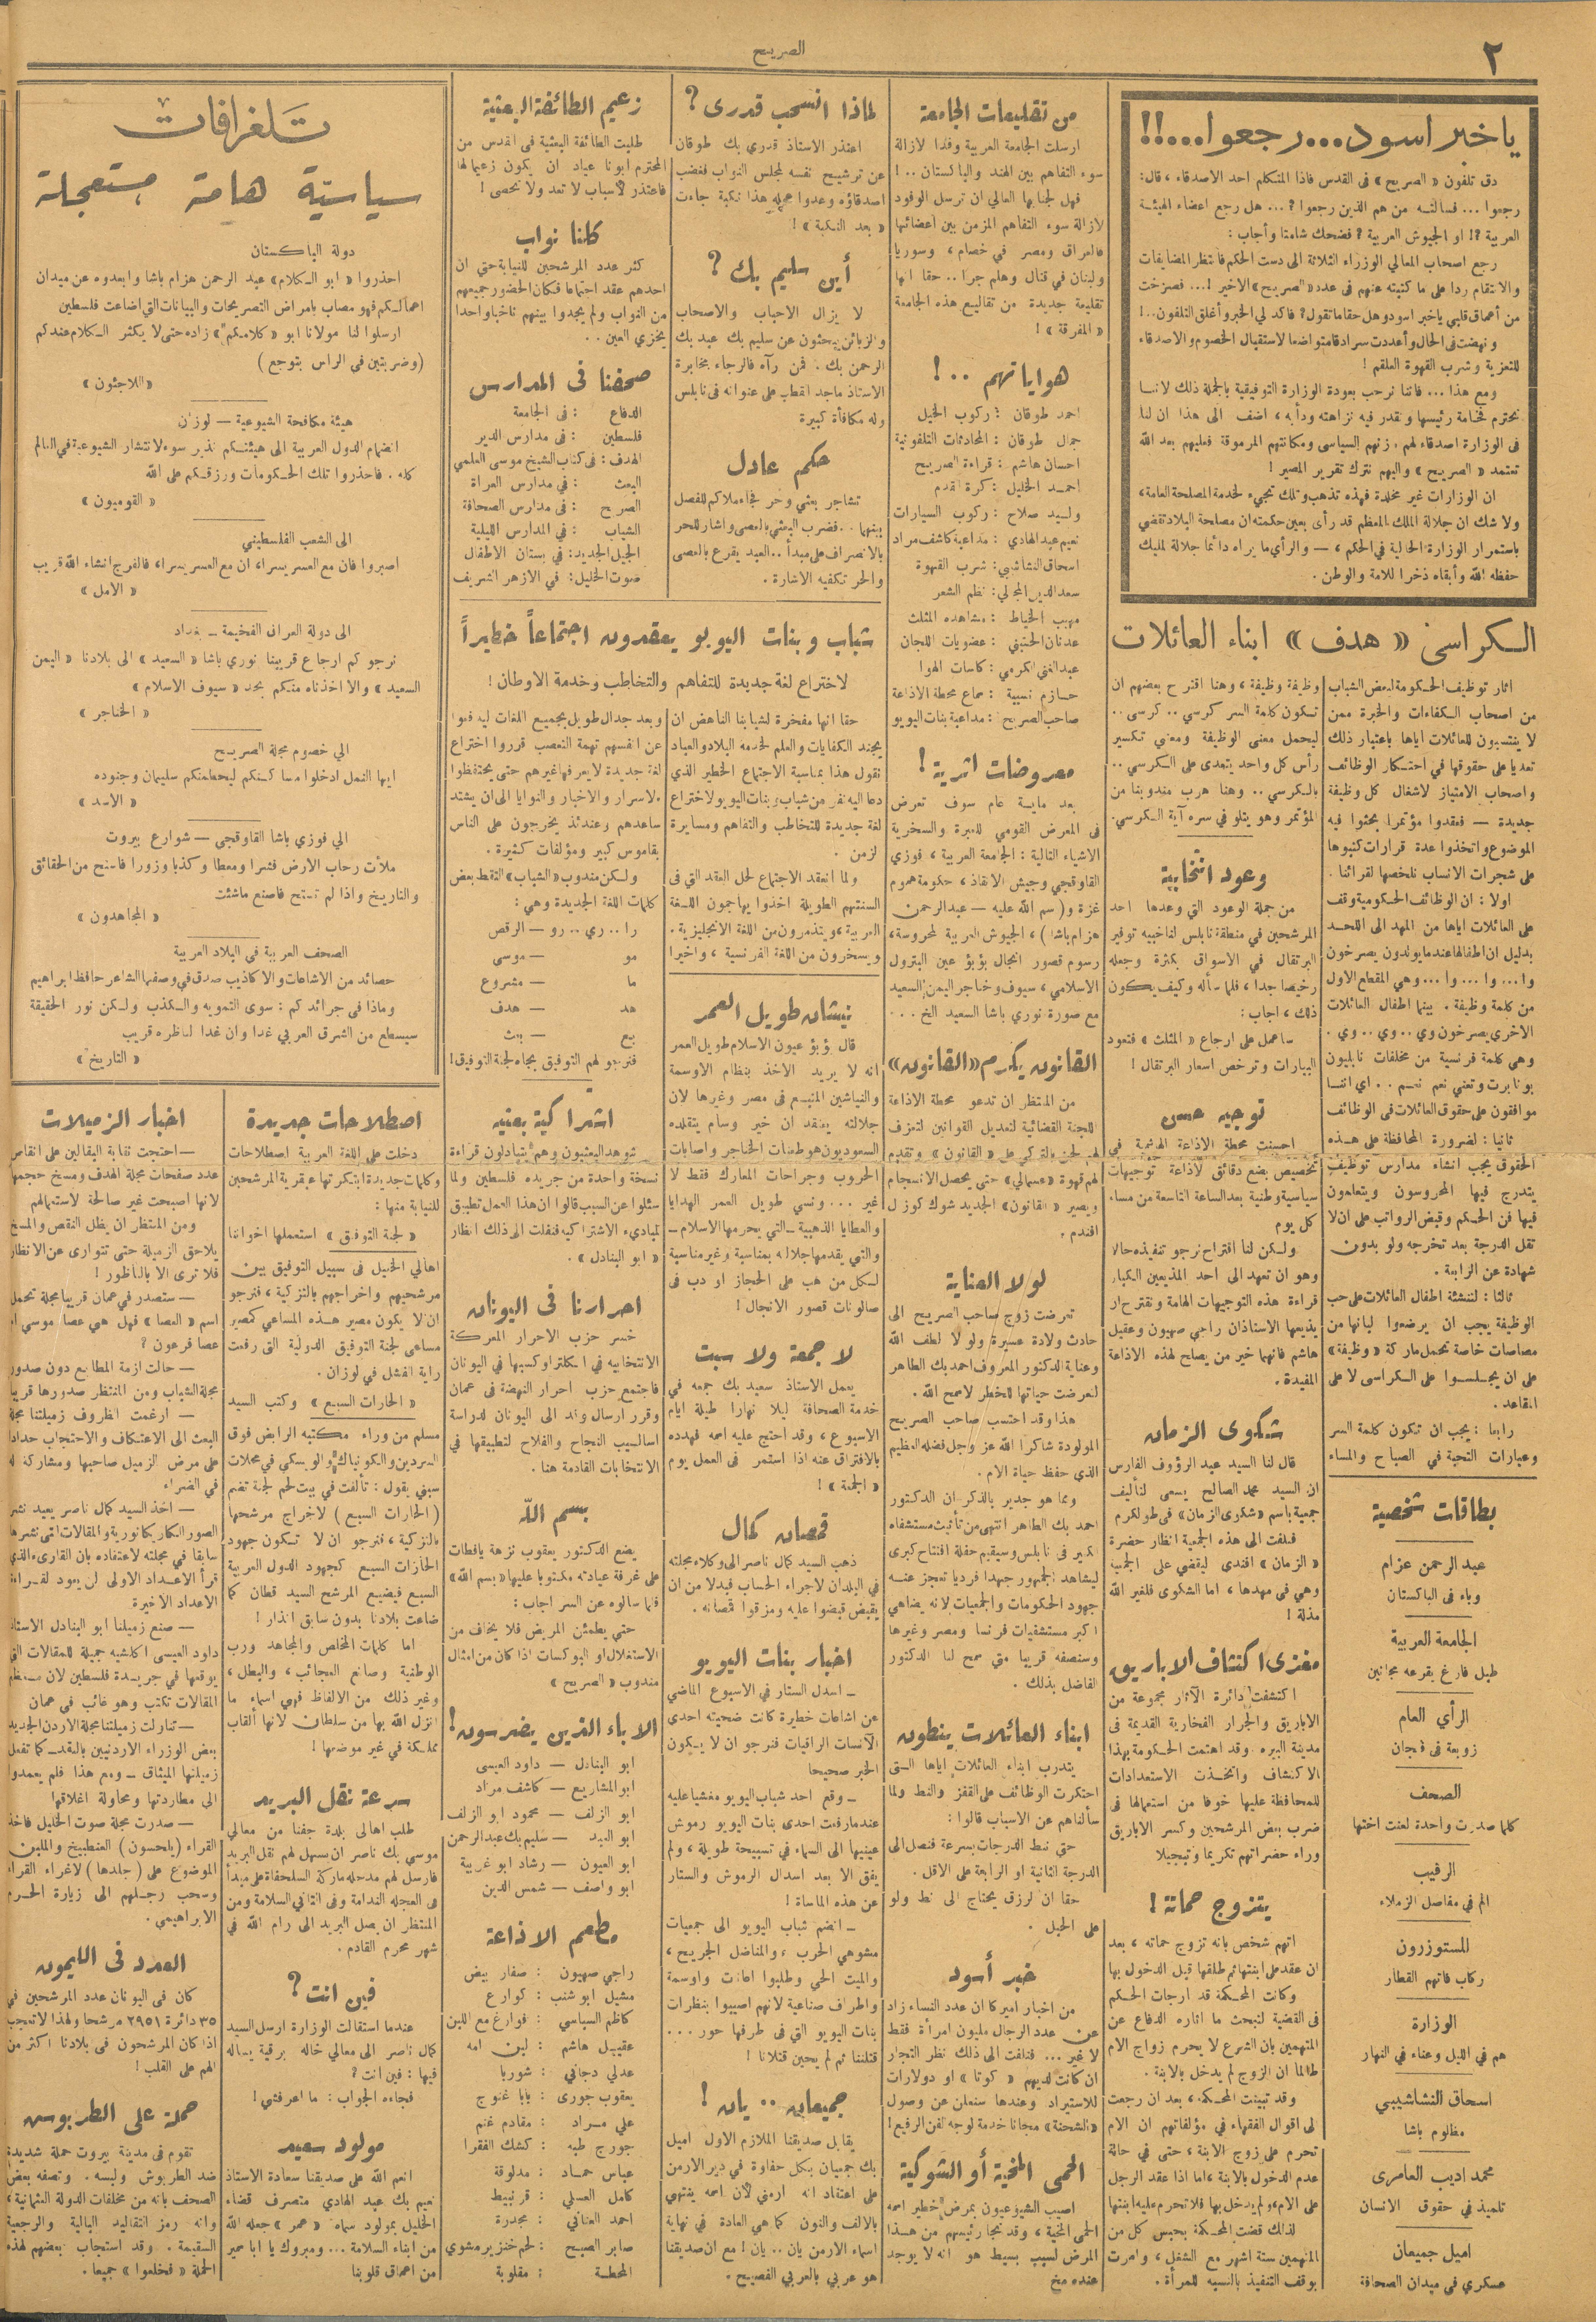 ٢
الصريح
ياخبر اسود...رجعوا...!!
دق تلفون « الصريح » فى القدس فاذا المتكلم احد الاصدقاء ، قال :
رجعوا ... فسألته من هم الذين رجعوا ؟ ... هل رجع اعضاء الهيئة
العربية ؟! او الجيوش العربية ؟ فضحك شامتا وأجاب :
رجع اصحاب المعالي الوزراء الثلاثة الى دست الحكم فانتظر المضايقات
والانتقام ردا على ما كتبته عنهم فى عدد « الصريح » الاخير !... فصرخت
من أعماق قلبي ياخبر اسود وهل حقا ما تقول ؟ فاكد لي الخبر وأغلق التلفون..!
ونهضت فى الحال وأعددت سرادقا متواضعا لاستقبال الخصوم والاصدقاء
للتعزية وشرب القهوة العلقم !
ومع هذا ... فاننا نرحب بعودة الوزارة التوفيقية بالجملة ذلك لاننا
نحترم فخامة رئيسها ونقدر فيه نزاهته ودأبه ، اضف الى هذا ان لنا
فى الوزارة اصدقاء لهم وزنهم السياسى ومكانتهم المرموقة فعليهم بعد الله
تعتمد « الصريح » واليهم نترك تقرير المصير !
ان الوزارات غير مخلدة فهذه تذهب وتلك تجيء لخدمة المصلحة العامة ،
ولا شك ان جلالة الملك المعظم قد رأى بعين حكمته ان مصلحة البلاد تقضي
باستمرار الوزارة الحالية في الحكم ، — والرأي ما يراه دائما جلالة المليك
حفظه الله وأبقاه ذخرا للامة والوطن .
الكراسى « هدف » ابناء العائلات
اثار توظيف الحكومة لبعض الشباب
من اصحاب الكفاءات والخبرة ممن
لا ينتسبون للعائلات اياها باعتبار ذلك
تعديا على حقوقها في احتكار الوظائف
واصحاب الامتياز لاشغال كل وظيفة
جديدة — فعقدوا مؤتمرا بحثوا فيه
الموضوع واتخذوا عدة قرارات كتبوها
على شجرات الانساب نلخصها لقرائنا .
اولا : ان الوظائف الحكومية وقف
على العائلات اياها من المهد الى اللحد
بدليل ان اطفالها عندما يولدون يصرخون
وا... وا ... وا ... وهي المقطع الاول
من كلمة وظيفة . بينما اطفال العائلات
الاخرى يصرخون وي .. وي .. وي .
وهي كلمة فرنسية من مخلفات نابليون
بونابرت وتعني نعم نعم .. اي اننا
موافقون على حقوق العائلات فى الوظائف
ثانيا : لضرورة المحافظة على هذه
الحقوق يجب انشاء مدارس توظيف
يتدرج فيها المحروسون ويتعلمون
فيها فن الحكم وقبض الرواتب على ان لا
تقل الدرجة بعد تخرجه ولو بدون
شهادة عن الرابعة .
ثالثا : لتنشئة اطفال العائلات على حب
الوظيفة يجب ان يرضعوا لبانها من
مصاصات خاصة تحمل ماركة « وظيفة »
على ان يجلسوا على الكراسى لا على
المقاعد .
رابعا : يجب ان تكون كلمة السر
وعبارات التحية في الصباح والمساء
وظيفة وظيفة ، وهنا اقترح بعضهم ان
تكون كلمة السر كرسي .. كرسى ..
ليحمل معنى الوظيفة ومعنى تكسير
رأس كل واحد يتعدى على الكرسي ..
بالكرسي .. وهنا هرب مندوبنا من
المؤتمر وهو يتلو في سره آية الكرسي.
وعود انتخابية
من جملة الوعود التي وعدها احد
المرشحين في منطقة نابلس لناخبيه توفير
البرتقال في الاسواق بكثرة وجعله
رخيصا جدا ، فلما سأله وكيف يكون
ذلك ، اجاب :
ساعمل على ارجاع « المثلث » فتعود
البيارات وترخص اسعار البرتقال !
توجيه حسن
احسنت محطة الاذاعة الهاشمية في
تخصيص بضع دقائق لاذاعة توجيهات
سياسية وطنية بعد الساعة التاسعة من مساء
كل يوم
ولكن لنا اقتراح نرجو تنفيذه حالا
وهو ان تعهد الى احد المذيعين الكبار
قراءة هذه التوجيهات الهامة ونقترح ان
يذيعها الاستاذان راجي صهيون وعقيل
هاشم فانهما خير من يصلح لهذه الاذاعة
المفيدة .
شكوى الزمان
قال لنا السيد عبد الرؤوف الفارس
ان السيد محمد الصالح يسعى لتأليف
جمعية باسم « شكوى الزمان » في طولكرم
فلفت الى هذه الجمعية انظار حضرة
« الزمان » افندى ليقضي على الجمعية
وهي في مهدها ، اما الشكوى فلغير الله
مذلة !
مغزى اكتشاف الاباريق
اكتشفت دائرة الآثار مجموعة من
الاباريق والجرار الفخارية القديمة فى
مدينة البيره وقد اهتمت الحكومة بهذا
الاكتشاف واتخذت الاستعدادات
للمحافظة عليها خوفا من استعمالها فى
ضرب بعض المرشحين وكسر الاباريق
وراء حضراتهم تكريما وتبجيلا
يتزوج حماتة !
اتهم شخص بانه تزوج حماته ، بعد
ان عقد على ابنتها ثم طلقها قبل الدخول بها
وكانت المحكمة قد ارجات الحكم
فى القضية لتبحث ما اثاره الدفاع عن
المتهمين بان الشرع لا يحرم زواج الام
طالما ان الزوج لم يدخل بالابنة .
وقد تبينت المحكمة ، بعد ان رجعت
الى اقوال الفقهاء في مؤلفاتهم ان الام
تحرم على زوج الابنة ، حتى في حالة
عدم الدخول بالابنة ، اما اذا عقد الرجل
على الام ، ولم يدخل بها فلا تحرم عليه ابنتها
لذلك قضت المحكمة بحبس كل من
المتهمين ستة اشهر مع الشغل ، وامرت
بوقف التنفيذ بالنسبه للمرأة .
بطاقات شخصية
عبد الرحمن عزام
وباء فى الباكستان
الجامعة العربية
طبل فارغ يقرعه مجانين
الرأي العام
زوبعة فى فنجان
الصحف
كلما صدرت واحدة لعنت اختها
الرقيب
الم في مفاصل الزملاء
المستوزرون
ركاب فاتهم القطار
الوزارة
هم في الليل وعناء في النهار
اسحاق النشاشيبي
مظلوم باشا
محمد اديب العامرى
تلميذ في حقوق الانسان
اميل جميعان
عسكري فى ميدان الصحافة
من تقليعات الجامعة
ارسلت الجامعة العربية وفدا لازالة
سوء التفاهم بين الهند والباكستان .. !
فهل لجنابها العالي ان ترسل الوفود
لازالة سوء التفاهم المزمن بين اعضائها
فالعراق ومصر في خصام ، وسوريا
ولبنان في قتال وهلم جرا .. حقا انها
تقليعة جديدة من تقاليع هذه الجامعة
« المفرقة » !
هواياتهم .. !
احمد طوقان : ركوب الخيل
جمال طوقان : المحادثات التلفونية
احسان هاشم : قراءة الصريح
احمد الخليل : كرة القدم
وليد صلاح : ركوب السيارات
نعيم عبد الهادي : مداعبة كاشف مراد
اسحاق النشاشيبي : شرب القهوة
سعد الدين المجالي : نظم الشعر
مهيب الخياط : مشاهده المثلث
عدنان الحسيني : عضويات اللجان
عبد الغني الكرمي : كاسات الهوا
حازم نسيبة : سماع محطة الاذاعة
صاحب الصريح : مداعبة بنات اليويو
معروضات اثرية !
بعد ماية عام سوف تعرض
فى المعرض القومي للعبرة والسخرية
الاشياء التالية : الجامعة العربية ، فوزي
القاوقجي وجيش الانقاذ ، حكومة عموم
غزة و( سم الله عليه — عبد الرحمن
عزام باشا ) ، الجيوش العربية لمحروسة ،
رسوم قصور انجال بؤبؤ عين البترول
الاسلامي ، سيوف وخناجر اليمن السعيد
مع صورة نوري باشا السعيد الخ ...
القانون يكرم « القانون »
من المنتظر ان تدعو محطة الاذاعة
اللجنة القضائية لتعديل القوانين لتعزف
لهم لحن بالتركي على « القانون » وتقدم
لهم قهوة « عصملي » حتى يحصل الانسجام
ويصير « القانون » الجديد شوك كوزل
افندم .
لولا العناية
تعرضت زوج صاحب الصريح الى
حادث ولادة عسيرة ولولا لطف الله
وعناية الدكتور المعروف احمد بك الطاهر
لتعرضت حياتها للخطر لا سمح الله .
هذا وقد احتسب صاحب الصريح
المولودة شاكرا الله عز وجل فضله العظيم
الذي حفظ حياة الام .
ومما هو جدير بالذكر ان الدكتور
احمد بك الطاهر انتهى من تأثيث مستشفاه
الكبير فى نابلس وسيقيم حفلة افتتاح كبرى
ليشاهد الجمهور جهدا فرديا تعجز عنه
جهود الحكومات والجمعيات لانه يضاهي
اكبر مستشفيات فرنسا ومصر وغيرها
وسنصفه قريبا متى سمح لنا الدكتور
الفاضل بذلك .
ابناء العائلات ينطون
يتدرب ابناء العائلات اياها التى
احتكرت الوظائف على القفز والنط ولما
سألناهم عن الاسباب قالوا :
حتى ننط الدرجات بسرعة فنصل الى
الدرجة الثانية او الرابعة على الاقل .
حقا ان لرزق يحتاج الى نط ولو
على الحبل .
خبر أسود
من اخبار اميركا ان عدد النساء زاد
عن عدد الرجال مليون امرأة فقط
لا غير ... فنلفت الى ذلك نظر التجار
ان كانت لديهم « كوتا » او دولارات
للاستيراد وعندها سنعلن عن وصول
« الشحنة » مجانا خدمة لوجه الفن الرفيع !
الحمى المخية أو الشوكية
اصيب الشيوعيون بمرض خطير اسمه
الحمى المخية ، وقد نجا رئيسهم من هذا
المرض لسبب بسيط هو انه لا يوجد
عنده مخ
لماذا انسحب قدرى ؟
اعتذر الاستاذ قدري بك طوقان
عن ترشيح نفسه لمجلس النواب فغضب
اصدقاؤه وعدوا عمله هذا نكبة جاءت
« بعد النكبة » !
أين سليم بك ؟
لا يزال الاحباب والاصحاب
والزبائن يبحثون عن سليم بك عبد بك
الرحمن بك . فمن رآه فالرجاء مخابرة
الاستاذ ماجد القطب على عنوانه فى نابلس
وله مكافأة كبيرة
حكم عادل
تشاجر بعثي وحر فجاء ملاكم للفصل
بينهما .. فضرب البعثي بالعصى واشار للحر
بالانصراف على مبدأ .. العبد يقرع بالعصى
والحر تكفيه الاشارة .
زعيم الطائفة البعثية
طلبت الطائفة البعثية فى القدس من
المحترم ابونا عياد ان يكون زعيما لها
فاعتذر لاسباب لا تعد ولا تحصى !
كلنا نواب
كثر عدد المرشحين للنيابة حتى ان
احدهم عقد اجتماعا فكان الحضور جميعهم
من النواب ولم يجدوا بينهم ناخبا واحدا
يخزي العين ..
صحفنا فى المدارس
الدفاع : فى الجامعة
فلسطين : فى مدارس الدير
الهدف : فى كتاب الشيخ موسى العلمي
البعث : في مدارس العراة
الصريح : فى مدارس الصحافة
الشباب : في المدارس الليلية
الجيل الجديد : في بستان الاطفال
صوت الخليل : في الازهر الشريف
شباب وبنات اليويو يعقدون اجتماعاً خطيراً
لاختراع لغة جديدة للتفاهم والتخاطب وخدمة الاوطان !
حقا انها مفخرة لشبابنا الناهض ان
يجند الكفايات والعلم لخدمه البلاد والعباد
نقول هذا بمناسبة الاجتماع الخطير الذي
دعا اليه نفر من شباب وبنات اليويو لاختراع
لغة جديدة للتخاطب والتفاهم ومسايرة
الزمن .
ولما انعقد الاجتماع لحل العقد التي فى
السنتهم الطويلة اخذوا يهاجمون اللغة
العربية ، ويتذمرون من اللغة الانجليزية .
ويسخرون من اللغة الفرنسية ، واخيرا
وبعد جدال طويل بجميع اللغات ليدفعوا
عن انفسهم تهمة التعصب قرروا اختراع
لغة جديدة لا يعرفها غيرهم حتى يحتفظوا
بالاسرار والاخبار والنوايا الى ان يشتد
ساعدهم وعندئذ يخرجون على الناس
بقاموس كبير ومؤلفات كثيرة .
ولكن مندوب « الشباب » التقط بعض
كلمات اللغة الجديدة وهي :
را .. ري .. رو — الرقص
مو — موسى
ما — مشروع
هد — هدف
بع — بعث
فنرجو لهم التوفيق بجاه لجنة التوفيق !
نيشان طويل العمر
قال بؤبؤ عيون الاسلام طويل العمر
انه لا يريد الاخذ بنظام الاوسمة
والنياشين المتبع فى مصر وغيرها لان
جلالته يعتقد ان خير وسام يتقلده
السعوديون هو طعنات الخناجر واصابات
الحروب وجراحات المعارك فقط لا
غير ... ونسي طويل العمر الهدايا
والعطايا الذهبية — التي يحرمها الاسلام —
والتي يقدمها جلاله بمناسبة وغير مناسبة
لكل من هب على الحجاز او دب فى
صالونات قصور الانجال !
لا جمعة ولا سبت
يعمل الاستاذ سعيد بك جمعه في
خدمة الصحافة ليلا نهارا طيلة ايام
الاسبوع ، وقد احتج عليه اسمه فهدده
بالافتراق عنه اذا استمر فى العمل يوم
« الجمعة » !
قمصان كمال
ذهب السيد كمال ناصر الى وكلاء مجلته
في البلدان لاجراء الحساب فبدلا من ان
يقبض قبضوا عليه ومزقوا قمصانه .
اخبار بنات اليويو
— اسدل الستار في الاسبوع الماضي
عن اشاعات خطيرة كانت ضحيته احدى
الآنسات الراقيات فنرجو ان لا يكون
الخبر صحيحا
— وقع احد شباب اليويو مغشيا عليه
عندما رفعت احدى بنات اليويو رموش
عينيها الى السماء في تسبيحة طويلة ، ولم
يفق الا بعد اسدال الرموش والستار
عن هذه الماساة !
— انضم شباب اليويو الى جمعيات
مشوهي الحرب ، والمناضل الجريح ،
والميت الحي وطلبوا اعانات واوسمة
واطراف صناعية لانهم اصيبوا بنظرات
بنات اليويو التي فى طرفها حور ...
قتلننا ثم لم يحيين قتلانا !
جميعان .. يان !
يقابل صديقنا الملازم الاول اميل
بك جميعان بكل حفاوة في دير الارمن
على اعتقاد انه ارمني لان اسمه ينتهي
بالالف والنون كما هي العادة في نهاية
اسماء الارمن يان .. يان ! مع ان صديقنا
هو عربي بالعربي الفصيح .
اشتراكية بعثيه
شوهد البعثيون وهم يتبادلون قراءة
نسخة واحدة من جريده فلسطين ولما
سئلوا عن السبب قالوا ان هذا العمل تطبيق
لمبادىء الاشتراكيه فنلفت الى ذلك انظار
« ابو البنادل »
احرارنا فى اليونان
خسر حزب الاحرار المعركة
الانتخابيه في انكلترا وكسبها في اليونان
فاجتمع حزب احرار النهضة فى عمان
وقرر ارسال وفد الى اليونان لدراسة
اسالسيب النجاح والفلاح لتطبيقها في
الانتخابات القادمة هنا .
بسم الله
يضع الدكتور يعقوب نزهة يافطات
على غرفة عيادته مكتوبا عليها « بسم الله »
فلما سالوه عن السر اجاب :
حتى يطمئن المريض فلا يخاف من
الاستغلال او البوكسات اذا كان من امثال
مندوب « الصريح »
الاباء الذين يضرسون !
ابو البنادل — داود العيسى
ابو المشاريع — كاشف مراد
ابو الزلف — محمود ابو الزلف
ابو العبد — سليم بك عبد الرحمن
ابو العيون — رشاد ابو غريبة
ابو واصف — شمس الدين
مطعم الاذاعة
راجي صهيون : صفار بيض
ميشيل ابو شنب : كوارع
كاظم السياسي : قوارغ مع اللبن
عقيل هاشم : لبن امه
عدلي دجاني : شوربا
يعقوب جورى : بابا غنوج
علي مراد : مقادم غنم
جورج طبه : كشك الفقرا
عباس حماد : مدلوقة
كامل العسلي : قرنبيط
احمد العناني : مجدرة
صابر الصبح : لحم خنزير مشوي
المحطة : مقلوبة
تلغرافات
سياسيّة هامة مستعجلة
دولة الباكستان
احذروا « ابو الكلام » عبد الرحمن عزام باشا وابعدوه عن ميدان
اعمالكم فهو مصاب بامراض التصريحات والبيانات التي اضاعت فلسطين
ارسلوا لنا مولانا ابو « كلامكم » زاده حتى لا يكثر الكلام عندكم
( وضربتين في الراس بتوجع )
« اللاجئون »
هيئة مكافحة الشيوعية — لوزان
انضمام الدول العربية الى هيئتكم نذير سوء لانتشار الشيوعية في العالم
كله . فاحذروا تلك الحكومات ورزقكم على الله
« القوميون »
الى الشعب الفلسطيني
اصبروا فان مع العسر يسرا ، ان مع العسر يسرا ، فالفرج انشاء الله قريب
« الامل »
الى دولة العراق الفخيمة — بغداد
نرجوكم ارجاع قريبنا نوري باشا « السعيد » الى بلادنا « اليمن
السعيد » والا اخذناه منكم بحد « سيوف الاسلام »
« الخناجر »
الي خصوم مجلة الصريح
ايها النمل ادخلوا مساكنكم ليحطمنكم سليمان وجنوده
« الاسد »
الي فوزي باشا القاوقجي — شوارع بيروت
ملأت رحاب الارض فشرا ومعطا وكذبا وزورا فاستح من الحقائق
والتاريخ واذا لم تستح فاصنع ماشئت
« المجاهدون »
الصحف العربية في البلاد العربية
حصائد من الاشاعات والاكاذيب صدق في وصفها الشاعر حافظ ابراهيم
وماذا في جرائدكم : سوى التمويه والكذب ولكن نور الحقيقة
سيسطع من الشرق العربي غدا وان غدا لناظره قريب
« التاريخ »
اصطلاحات جديدة
دخلت على اللغة العربية اصطلاحات
وكلمات جديدة ابتكرتها عبقرية المرشحين
للنيابة منها :
« لجنة التوفيق » استعملها اخواننا
اهالي الخليل فى سبيل التوفيق بين
مرشحيهم واخراجهم بالتزكية ، فنرجو
ان لا يكون مصير هذه المساعي كمصير
مساعى لجنة التوفيق الدولية التي رفعت
راية الفشل في لوزان .
« الحارات السبع » وكتب السيد
مسلم من وراء مكتبه الرابض فوق
السردين والكونياك والويسكي في محلات
سبني يقول : تألفت في بيت لحم لجنة تضم
( الحارات السبع ) لاخراج مرشحها
بالتزكية ، فنرجو ان لا تكون جهود
الحارات السبع كجهود الدول العربية
السبع فيضيع المرشح السيد قطان كما
ضاعت بلادنا بدون سابق انذار !
اما كلمات المخلص والمجاهد ورب
الوطنية وصانع العجائب ، والبطل ،
وغير ذلك من الالفاظ فهي اسماء ما
انزل الله بها من سلطان لانها ألقاب
مملكة في غير موضعها !
سرعة نقل البريد
طلب اهالى بلدة جفنا من معالي
موسى بك ناصر ان يسهل لهم نقل البريد
فارسل لهم مدحله ماركة السلحفاة على مبدأ
فى العجلة الندامة وفى التاني السلامة ومن
المنتظر ان يصل البريد الى رام الله في
شهر محرم القادم .
فين انت ؟
عندما استقالت الوزارة ارسل السيد
كمال ناصر الى معالي خاله برقية يساله
فيها : فين انت ؟
فجاءه الجواب : ما اعرفشي !
مولود سعيد
انعم الله على صديقنا سعادة الاستاذ
نعيم بك عبد الهادي متصرف قضاء
الخليل بمولود سماه « عمر » جعله الله
من ابناء السلامة ... ومبروك يا ابا سمير
من اعماق قلوبنا
اخبار الزميلات
— احتجت نقابة البقالين على انقاص
عدد صفحات مجلة الهدف ومسخ حجمها
لانها اصبحت غير صالحة لاستعمالهم
ومن المنتظر ان يظل النقص والمسخ
يلاحق الزميلة حتى تتوارى عن الانظار
فلا ترى الا بالناظور !
— ستصدر في عمان قريبا مجلة تحمل
اسم « العصا » فهل هي عصا موسى ام
عصا فرعون ؟
— حالت ازمة المطابع دون صدور
مجلة الشباب ومن المنتظر صدورها قريبا
— ارغمت الظروف زميلتنا مجلة
البعث الى الاعتكاف والاحتجاب حدادا
على مرض الزميل صاحبها ومشاركة له
في الضراء
— اخذ السيد كمال ناصر يعيد نشر
الصور الكاريكاتورية والمقالات التي نشرها
سابقا في مجلته لاعتقاده بان القارىء الذي
قرأ الاعداد الاولى لن يعود لقراءة
الاعداد الاخيرة
— صنع زميلنا ابو البنادل الاستاذ
داود العيسى اكلشيه جميلة للمقالات التي
يوقعها في جريدة فلسطين لان معظم
المقالات تكتب وهو غائب في عمان
— تناولت زميلتنا مجلة الاردن الجديد
بعض الوزراء الاردنيين بالنقد — كما تفعل
زميلتها الميثاق — ومع هذا فلم يعمدوا
الى مطاردتها ومحاولة اغلاقها
— صدرت مجلة صوت الخليل فاخذ
القراء ( يلحسون ) العنطبيخ والملبن
الموضوع على ( جلدها ) لاغراء القراء
وسحب رجلهم الى زيارة الحرم
الابراهيمي .
العدد فى الليمون
كان فى اليونان عدد المرشحين في
٣٥ دائرة ٢٩٥١ مرشحا ولهذا لا تعجب
اذا كان المرشحون فى بلادنا اكثر من
الهم على القلب !
حملة على الطربوش
تقوم فى مدينة بيروت حملة شديدة
ضد الطربوش ولبسه . وتصفه بعض
الصحف بانه من مخلفات الدولة العثمانية ،
وانه رمز التقاليد البالية والرجعية
السقيمة . وقد استجاب بعضهم لهذه
الحملة « فخلعوا » جميعا .